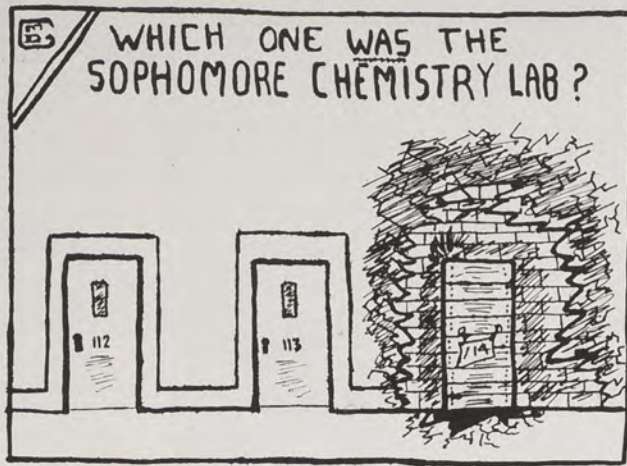 WHICH ONE WAS THE
SOPHOMORE CHEMISTRY LAB?
112
113
114